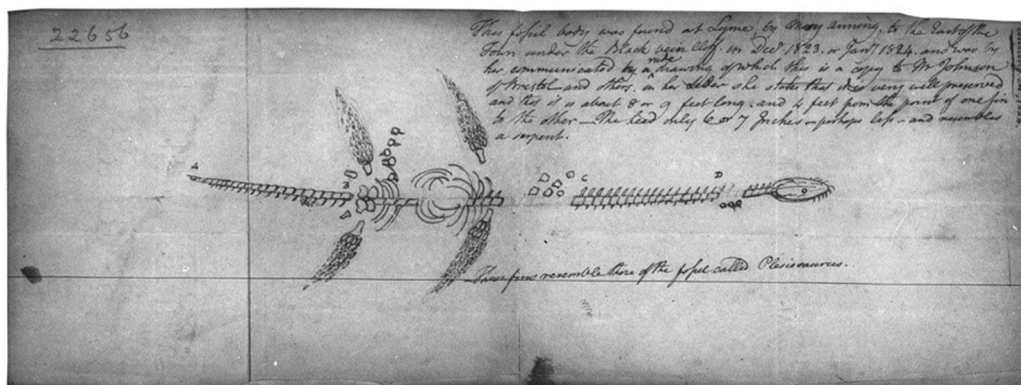 22656
This fossil body was found at Lyme, by Mary Anning, to the East of the
Town under the Black vein Cliff in Decr. 1823. or Jany 1824. and was by
her communicated by a rude drawing of which this is a Copy to Mr Johnson
of Bristol and others, in her letter she states that it is very well preserved
and this is about 8 or 9 feet long. and 4 feet from the point of one fin
to the other — The head only 6 or 7 Inches — perhaps less — and resembles
a serpent.
A
B
C
D
These fins resemble those of the fossil called Plesiosaurus.